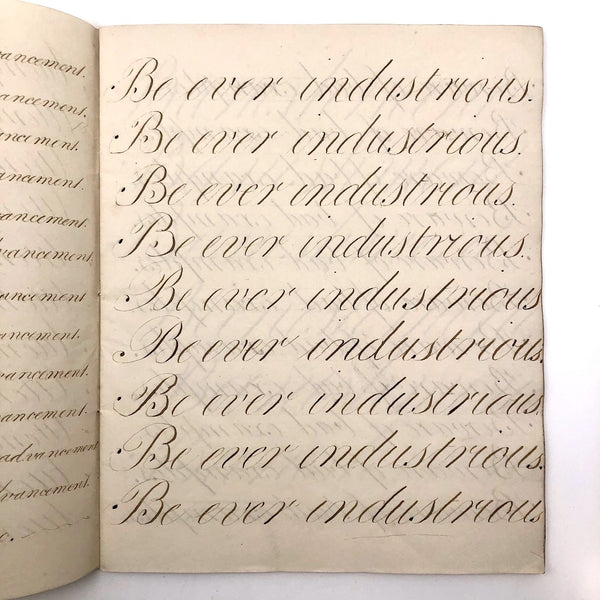 vancement.
vancement.
vancement.
vancement.
vancement.
dvancement.
vancement
vancement.
vancement.
vancement.
advancement
dvancement.
c.
Be ever industrious.
Be ever industrious.
Be ever industrious.
Be ever industrious.
Be ever industrious
Be ever industrious.
Be ever industrious.
Be ever industrious.
Be ever industrious